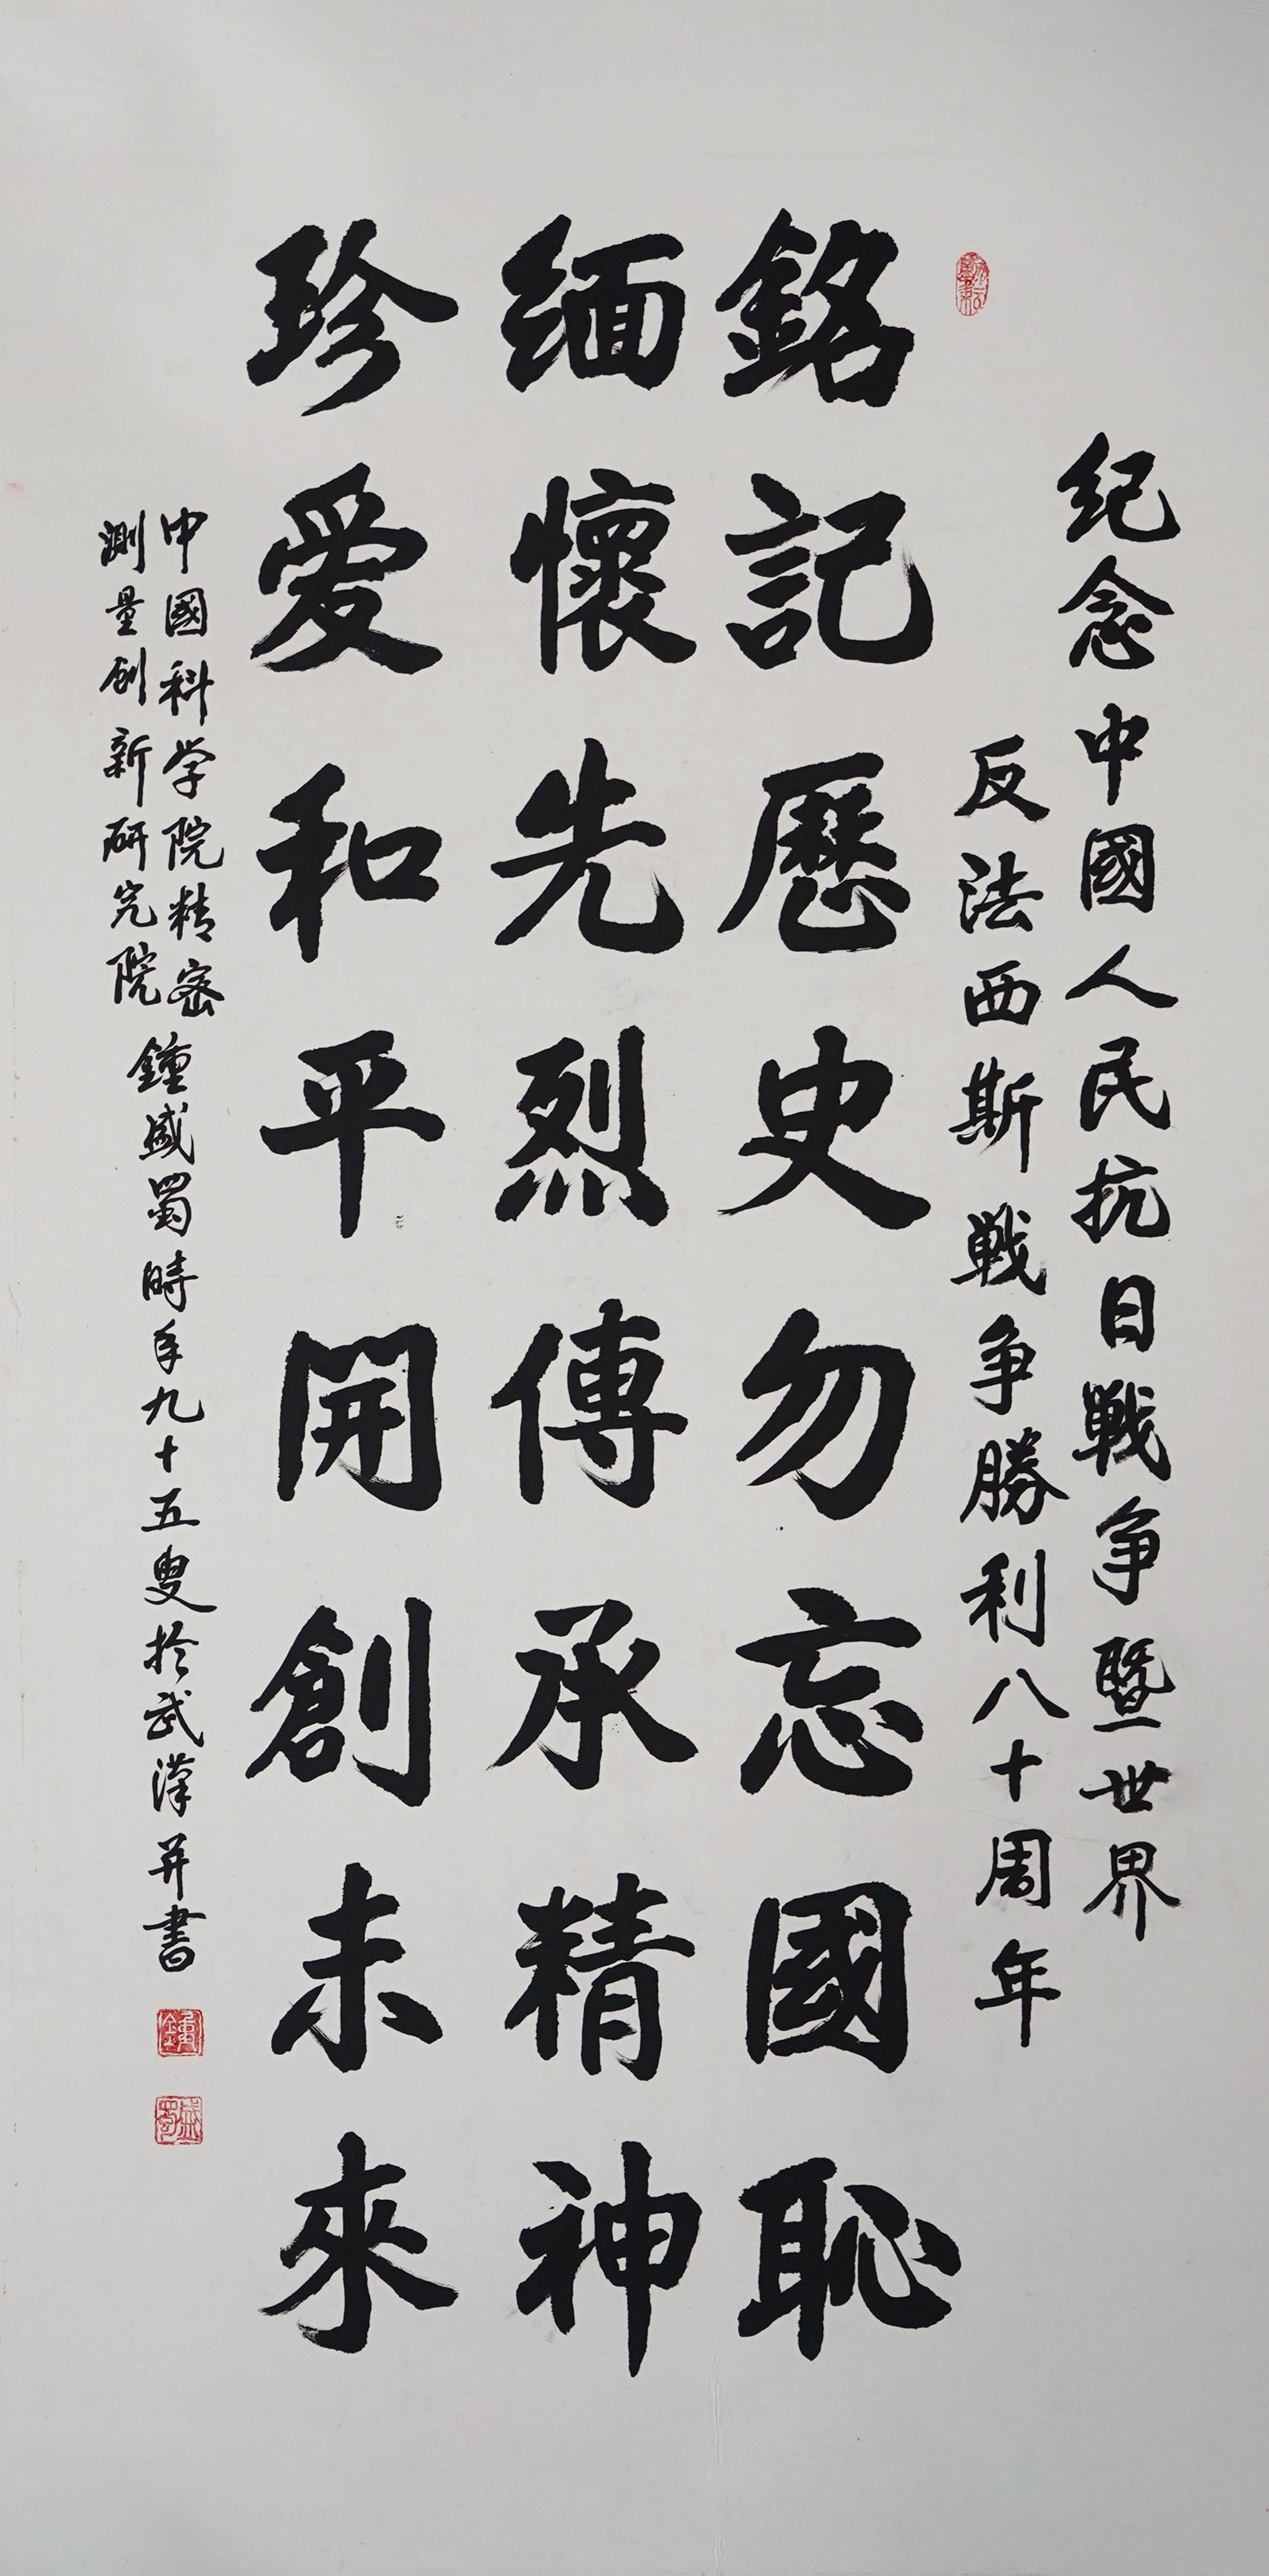 纪念中國人民抗日戦争暨世界
反法西斯戦争勝利八十周年
銘記歷史勿忘國恥
缅懷先烈傳承精神
珍爱和平開創未來
中國科学院精密
測量创新研究院
鍾盛蜀時年九十五叟於武漢并書
鍾
盛蜀